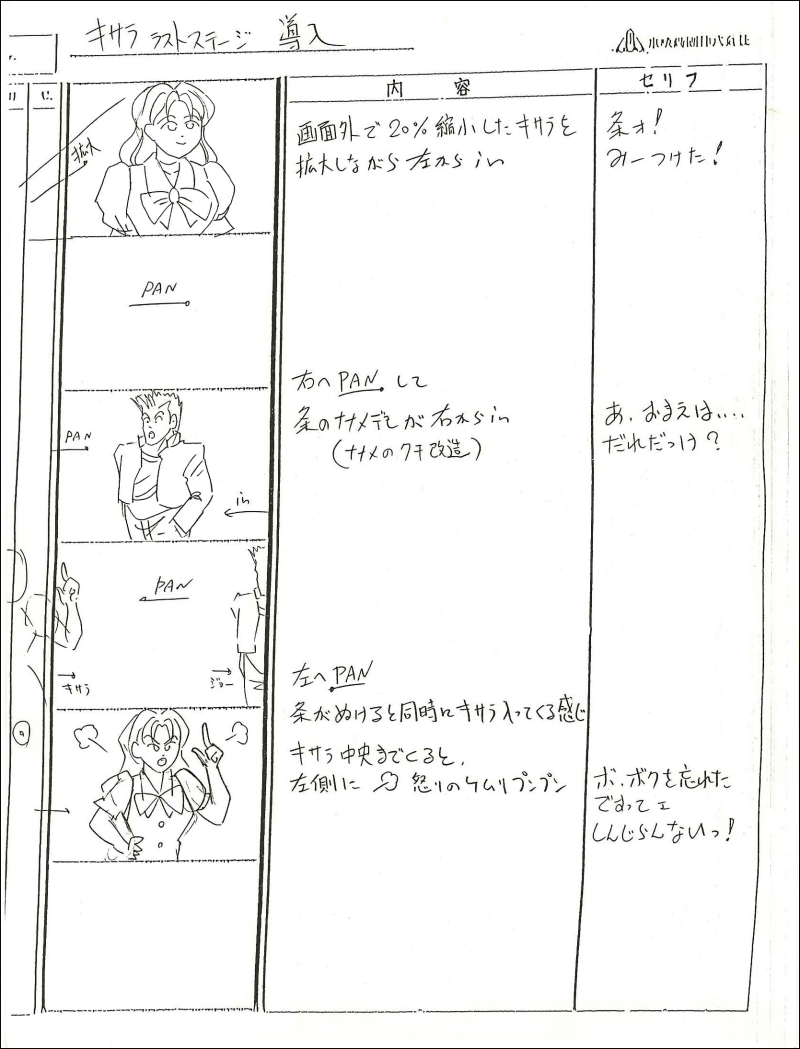 キサラ ラストステージ 導入
内容
セリフ
拡大
画面外で20%縮小したキサラを
拡大しながら左からin
条ォ!
みーつけた!
PAN
右へPANして
条のナナメデモが右からin
(ナナメのクチ改造)
PAN
in
あ、おまえは・・・
だれだっけ?
PAN
キサラ
ジョー
左へPAN
条がぬけると同時にキサラ入ってくる感じ
キサラ中央までくると、
左側に 怒りのケムリプンプン
ボ、ボクを忘れた
ですってェ
しんじらんないっ!